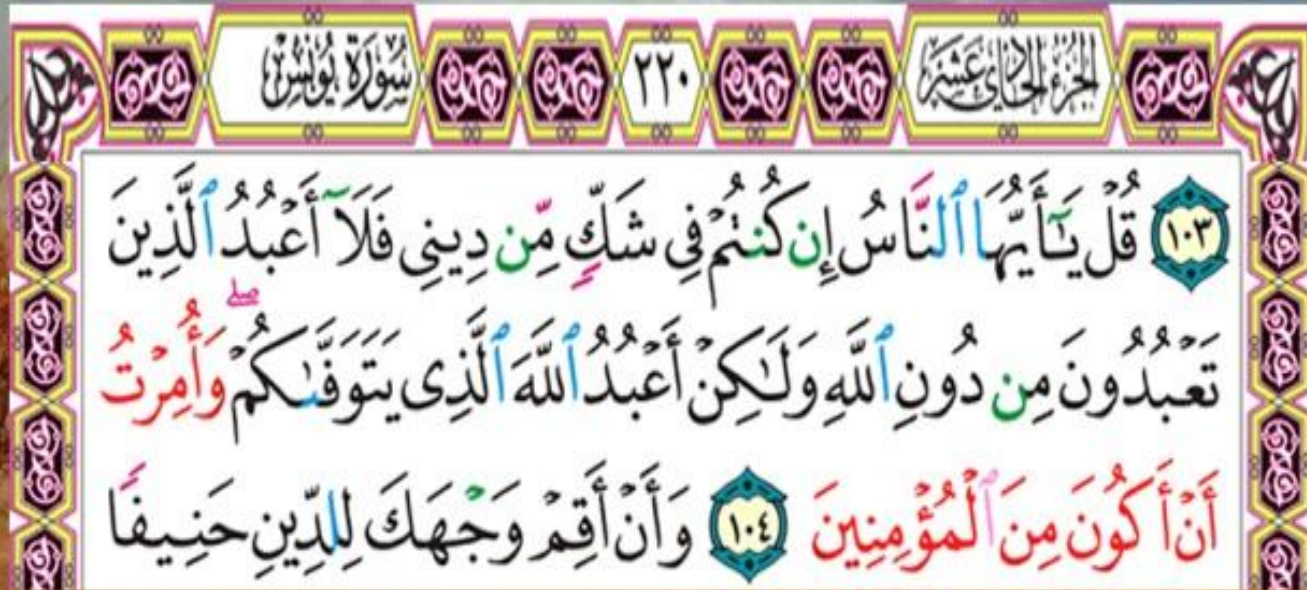 الجزء الحادي عشر ٢٢٠ سورة يونس
١٠٣ قُلْ يَـٰٓأَيُّهَا ٱلنَّاسُ إِن كُنتُمْ فِى شَكٍّ مِّن دِينِى فَلَآ أَعْبُدُ ٱلَّذِينَ
تَعْبُدُونَ مِن دُونِ ٱللَّهِ وَلَـٰكِنْ أَعْبُدُ ٱللَّهَ ٱلَّذِى يَتَوَفَّىٰكُمْ ۖ وَأُمِرْتُ
أَنْ أَكُونَ مِنَ ٱلْمُؤْمِنِينَ ١٠٤ وَأَنْ أَقِمْ وَجْهَكَ لِلدِّينِ حَنِيفًا